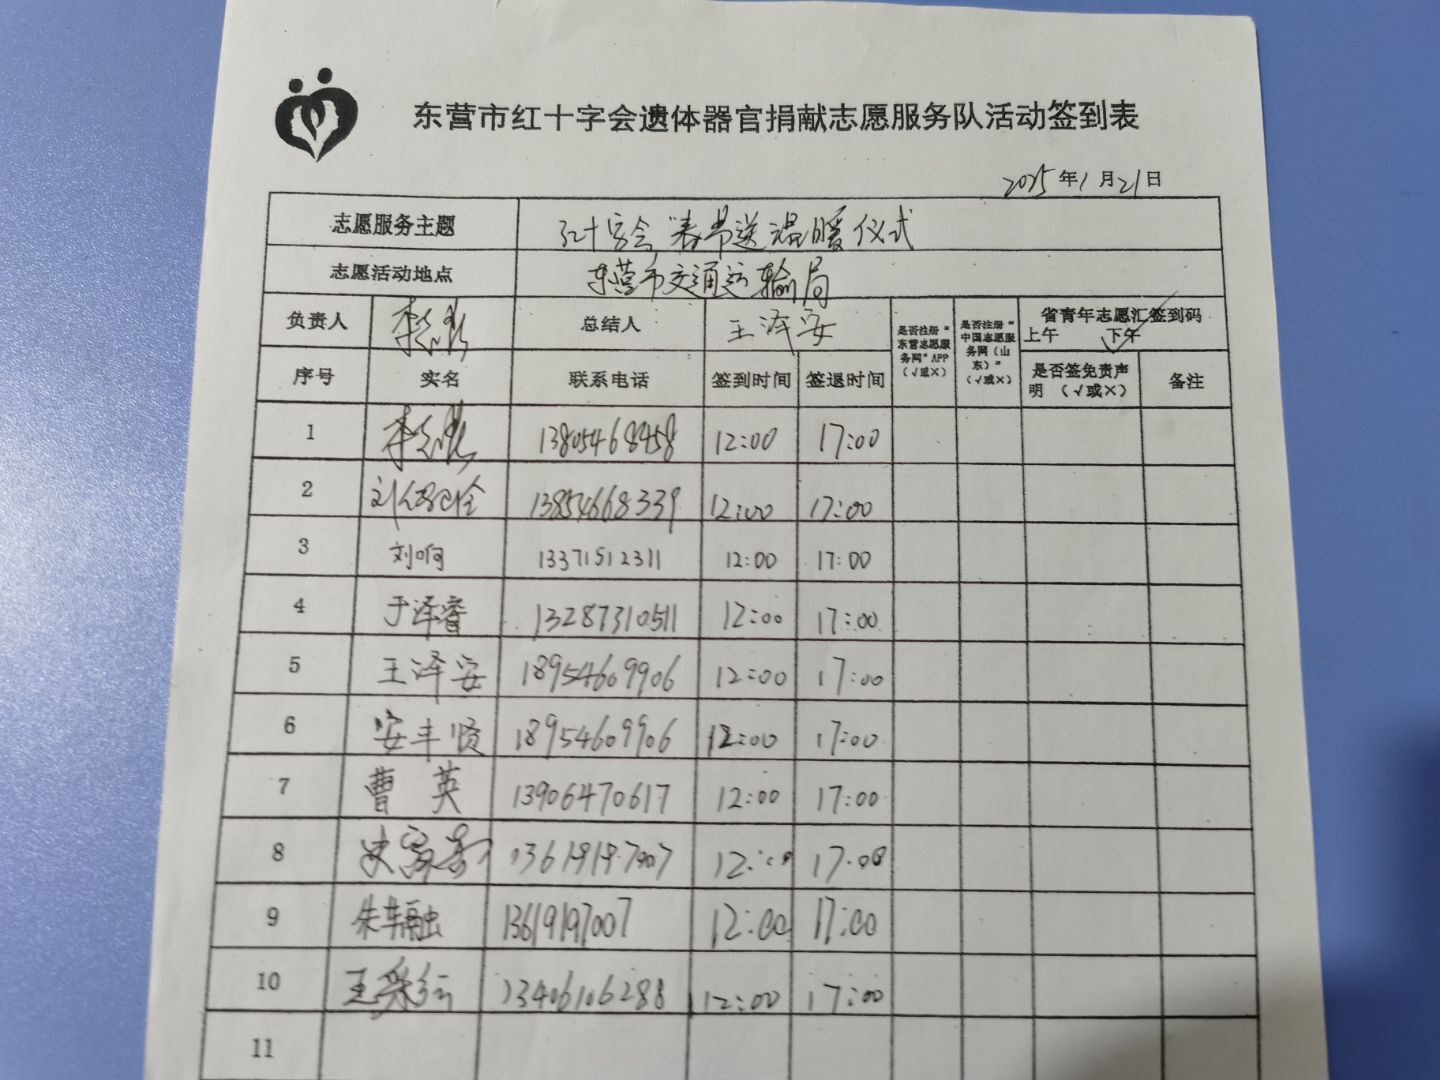 东营市红十字会遗体器官捐献志愿服务队活动签到表
2025年1月21日
志愿服务主题 红十字会"春节送温暖仪式
志愿活动地点 东营市交通运输局
负责人 总结人 王泽安 是否注册"东营志愿服务网"APP（√或×） 是否注册"中国志愿服务网（山东）"（√或×） 省青年志愿汇签到码 上午 下午√
序号 实名 联系电话 签到时间 签退时间 是否签免责声明（√或×） 备注
1 13805468458 12:00 17:00
2 13854668339 12:00 17:00
3 刘响 13371512311 12:00 17:00
4 于泽睿 13287310511 12:00 17:00
5 王泽安 18954609906 12:00 17:00
6 安丰贤 18954609906 12:00 17:00
7 曹英 13906470617 12:00 17:00
8 12:00 17:00
9 13619197007 12:00 17:00
10 13406106288 12:00 17:00
11